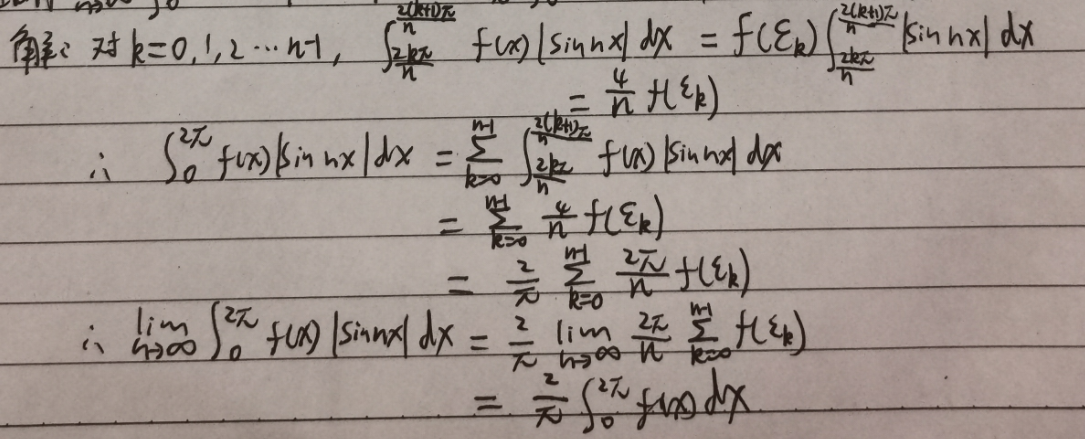 解: 对 k=0,1,2…n-1, ∫_{2kπ/n}^{2(k+1)π/n} f(x)|sin nx| dx = f(ξ_k) ∫_{2kπ/n}^{2(k+1)π/n} |sin nx| dx
= 4/n f(ξ_k)
∴ ∫_0^{2π} f(x)|sin nx| dx = ∑_{k=0}^{n-1} ∫_{2kπ/n}^{2(k+1)π/n} f(x)|sin nx| dx
= ∑_{k=0}^{n-1} 4/n f(ξ_k)
= 2/π ∑_{k=0}^{n-1} 2π/n f(ξ_k)
∴ lim_{n→∞} ∫_0^{2π} f(x)|sin nx| dx = 2/π lim_{n→∞} 2π/n ∑_{k=0}^{n-1} f(ξ_k)
= 2/π ∫_0^{2π} f(x) dx